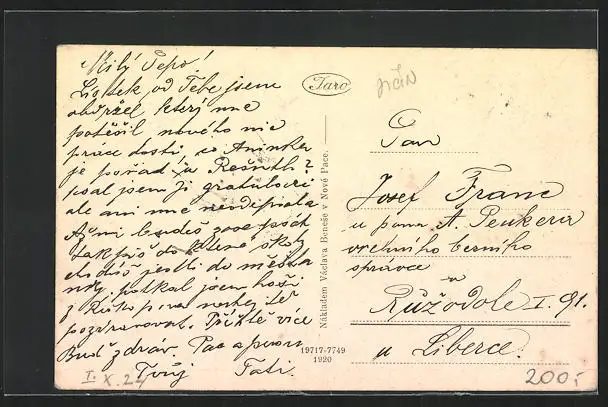 Milý Pepo!
Lístek od Tebe jsem
obdržel který mne
potěšil nového nic
práce dosti, co Aninka
je pořád u
psal jsem jí gratulaci
ale ani mne neodepsala
Až mi budeš zase psát
tak do školy
chodíš jestli do města
potkal jsem
z
pozdravovat. Příště více
Buď zdráv. Pac a pusu
Tvůj Tati.
I. X. 24
Jaro
Nákladem Václava Beneše v Nové Pace.
19717-7749
1920
JIČÍN
Pan
Josef Franc
u pana A. Peukera
vrchního berního
správce
v
Růžodole I. 91.
u Liberce.
200,-